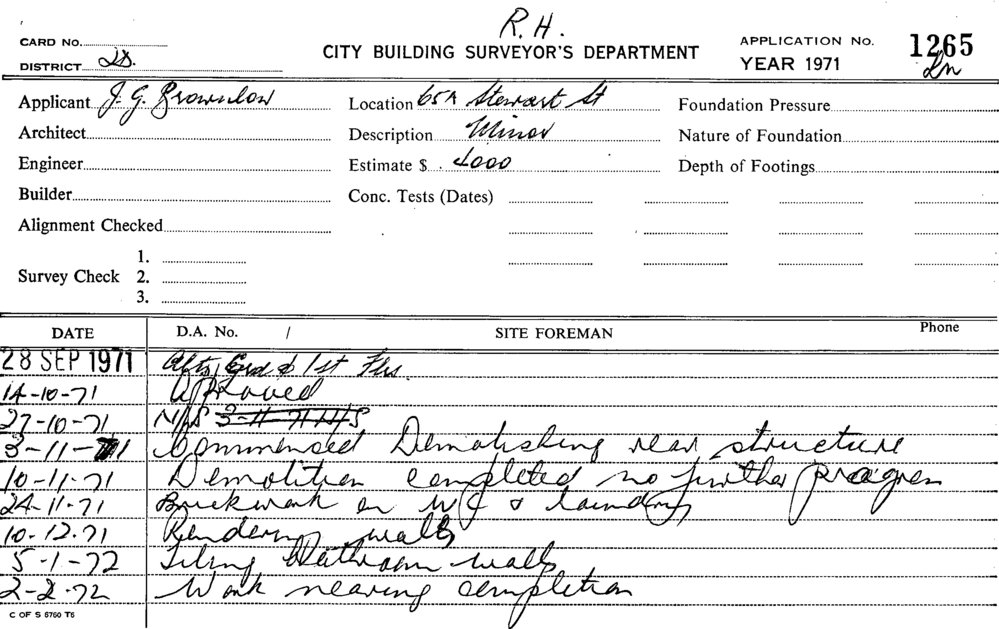 R.H.
CARD No.
CITY BUILDING SURVEYOR'S DEPARTMENT
APPLICATION No. 1265
DISTRICT
YEAR 1971
Applicant J. G. Brownlow Location 65A Stewart St Foundation Pressure
Architect Description Minor Nature of Foundation
Engineer Estimate $ 4000 Depth of Footings
Builder Conc. Tests (Dates)
Alignment Checked
1.
Survey Check 2.
3.
DATE D.A. No. / SITE FOREMAN Phone
28 SEP 1971 Alts, Grd & 1st Flrs.
14-10-71 Approved
27-10-71 N/S 3-11-71 N/S
3-11-71 Commenced Demolishing rear structure
10-11-71 Demolition completed no further progress
24-11-71 Brickwork on WC & laundry
10-12-71 Rendering walls
5-1-72 Tiling Bathroom walls
2-2-72 Work nearing completion
C OF S 6760 T6